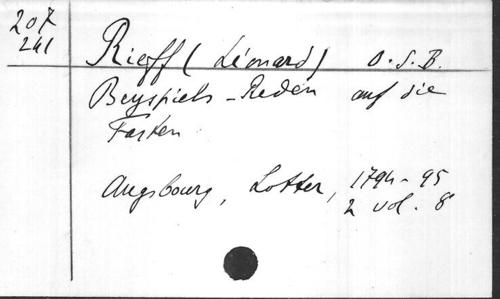 207
241
Rieff (Léonard) O.S.B.
Beyspiels-Reden auf die
Fasten
Augsbourg, Lotter, 1794-95
2 vol. 8°